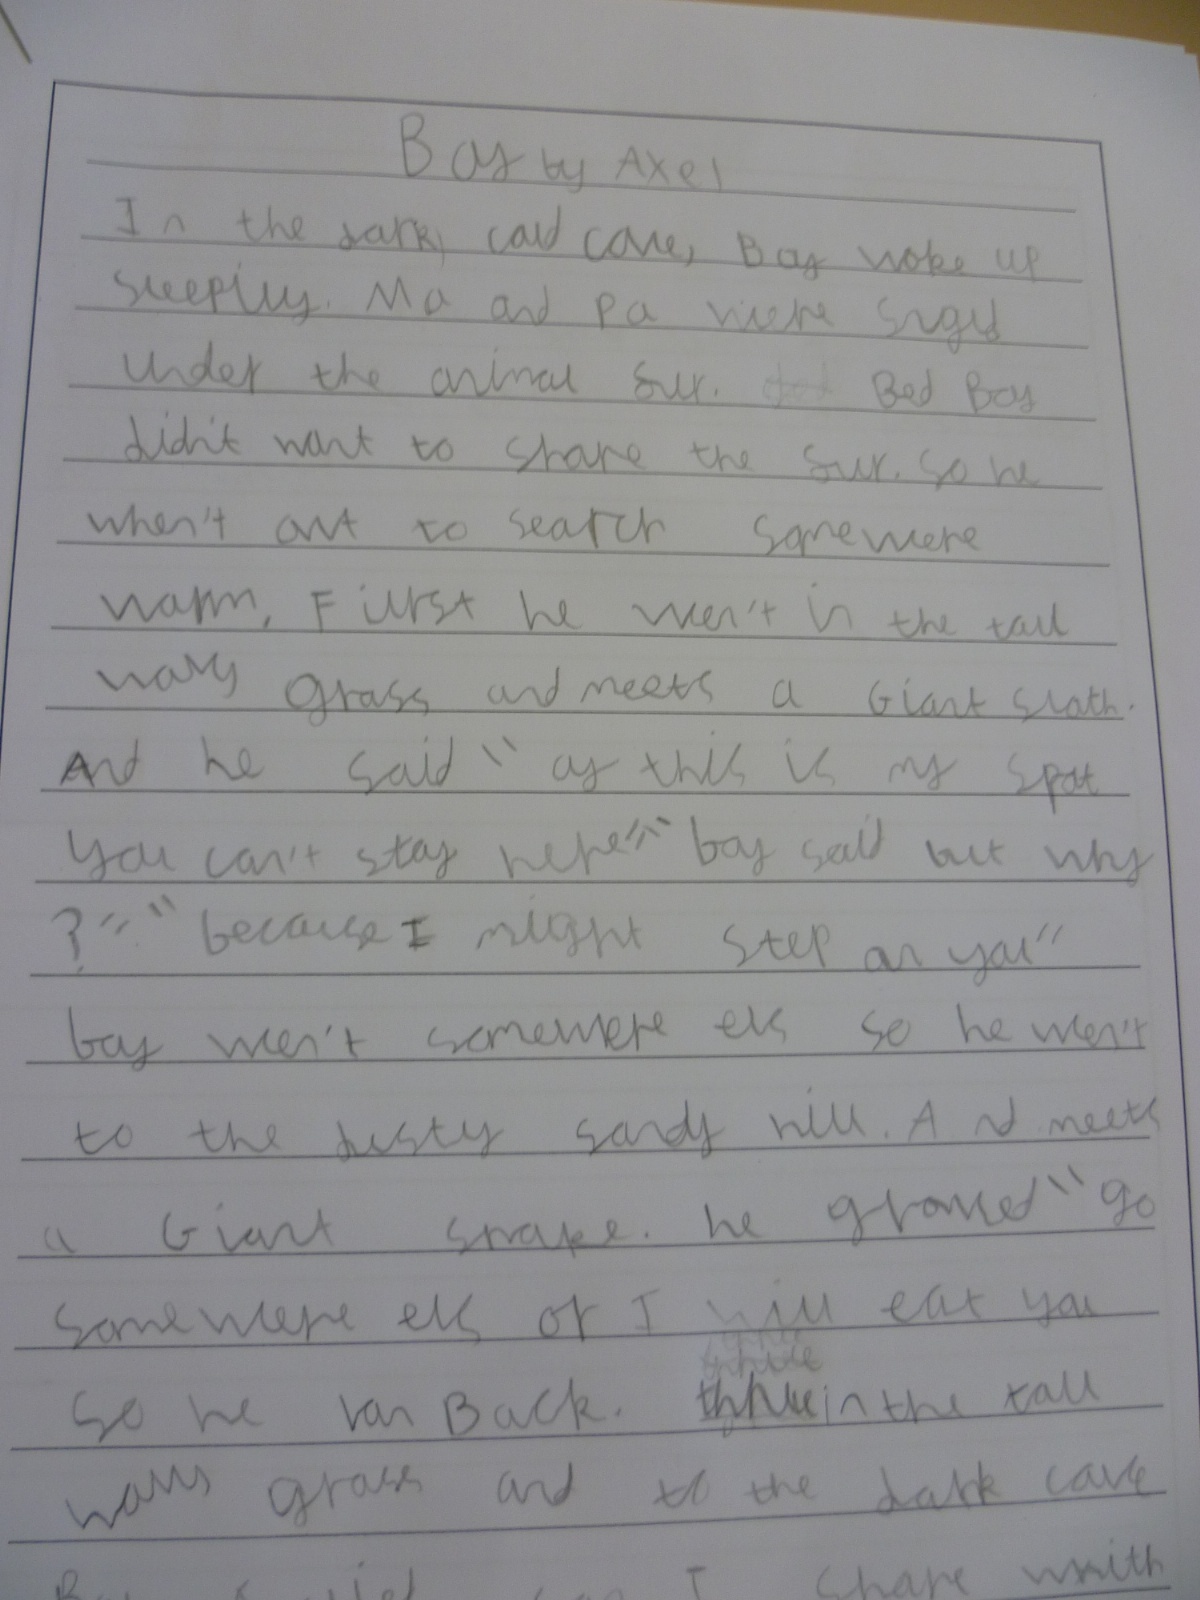 Boy by Axel
In the dark, cold cave, Boy woke up
sleepiley. Ma and Pa where snugd
under the animal fur. Bed Boy
didn't want to share the fur. So he
when't out to search somewere
warm, First he wen't in the tall
wavy grass and meets a Giant sloth.
And he said "oy this is my spot
you can't stay here" "boy said but why
?" "because I might step on you"
boy wen't somewere els so he wen't
to the dusty sandy hill. And meets
a Giant snake. he growled "go
somewere els or I will eat you
So he ran Back. in the tall
wavy grass and to the dark cave
Boy said can I share with